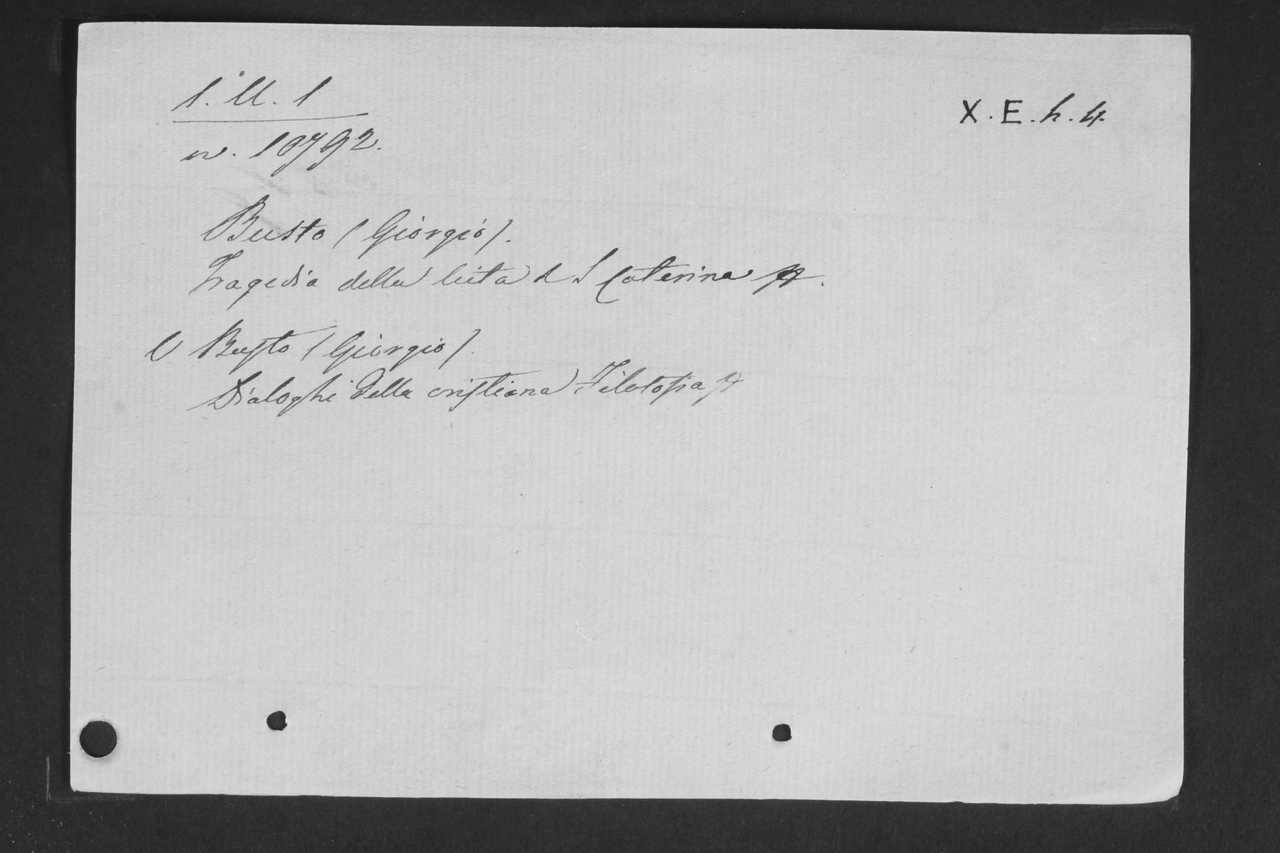 1. M. 1
X. E. h. 4.
n. 10792.
Busto (Giorgio).
Tragedia della uita d S Caterina
Busto (Giorgio).
Dialoghi della cristiana Filosofia